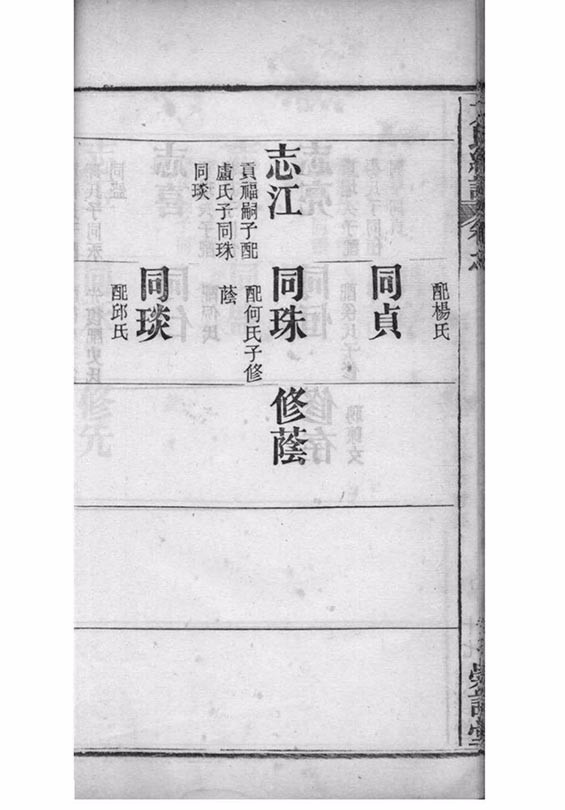 配楊氏
同貞
志江
貢福嗣子配
盧氏子同珠
同琰
同珠
配何氏子修
蔭
修蔭
同琰
配邱氏